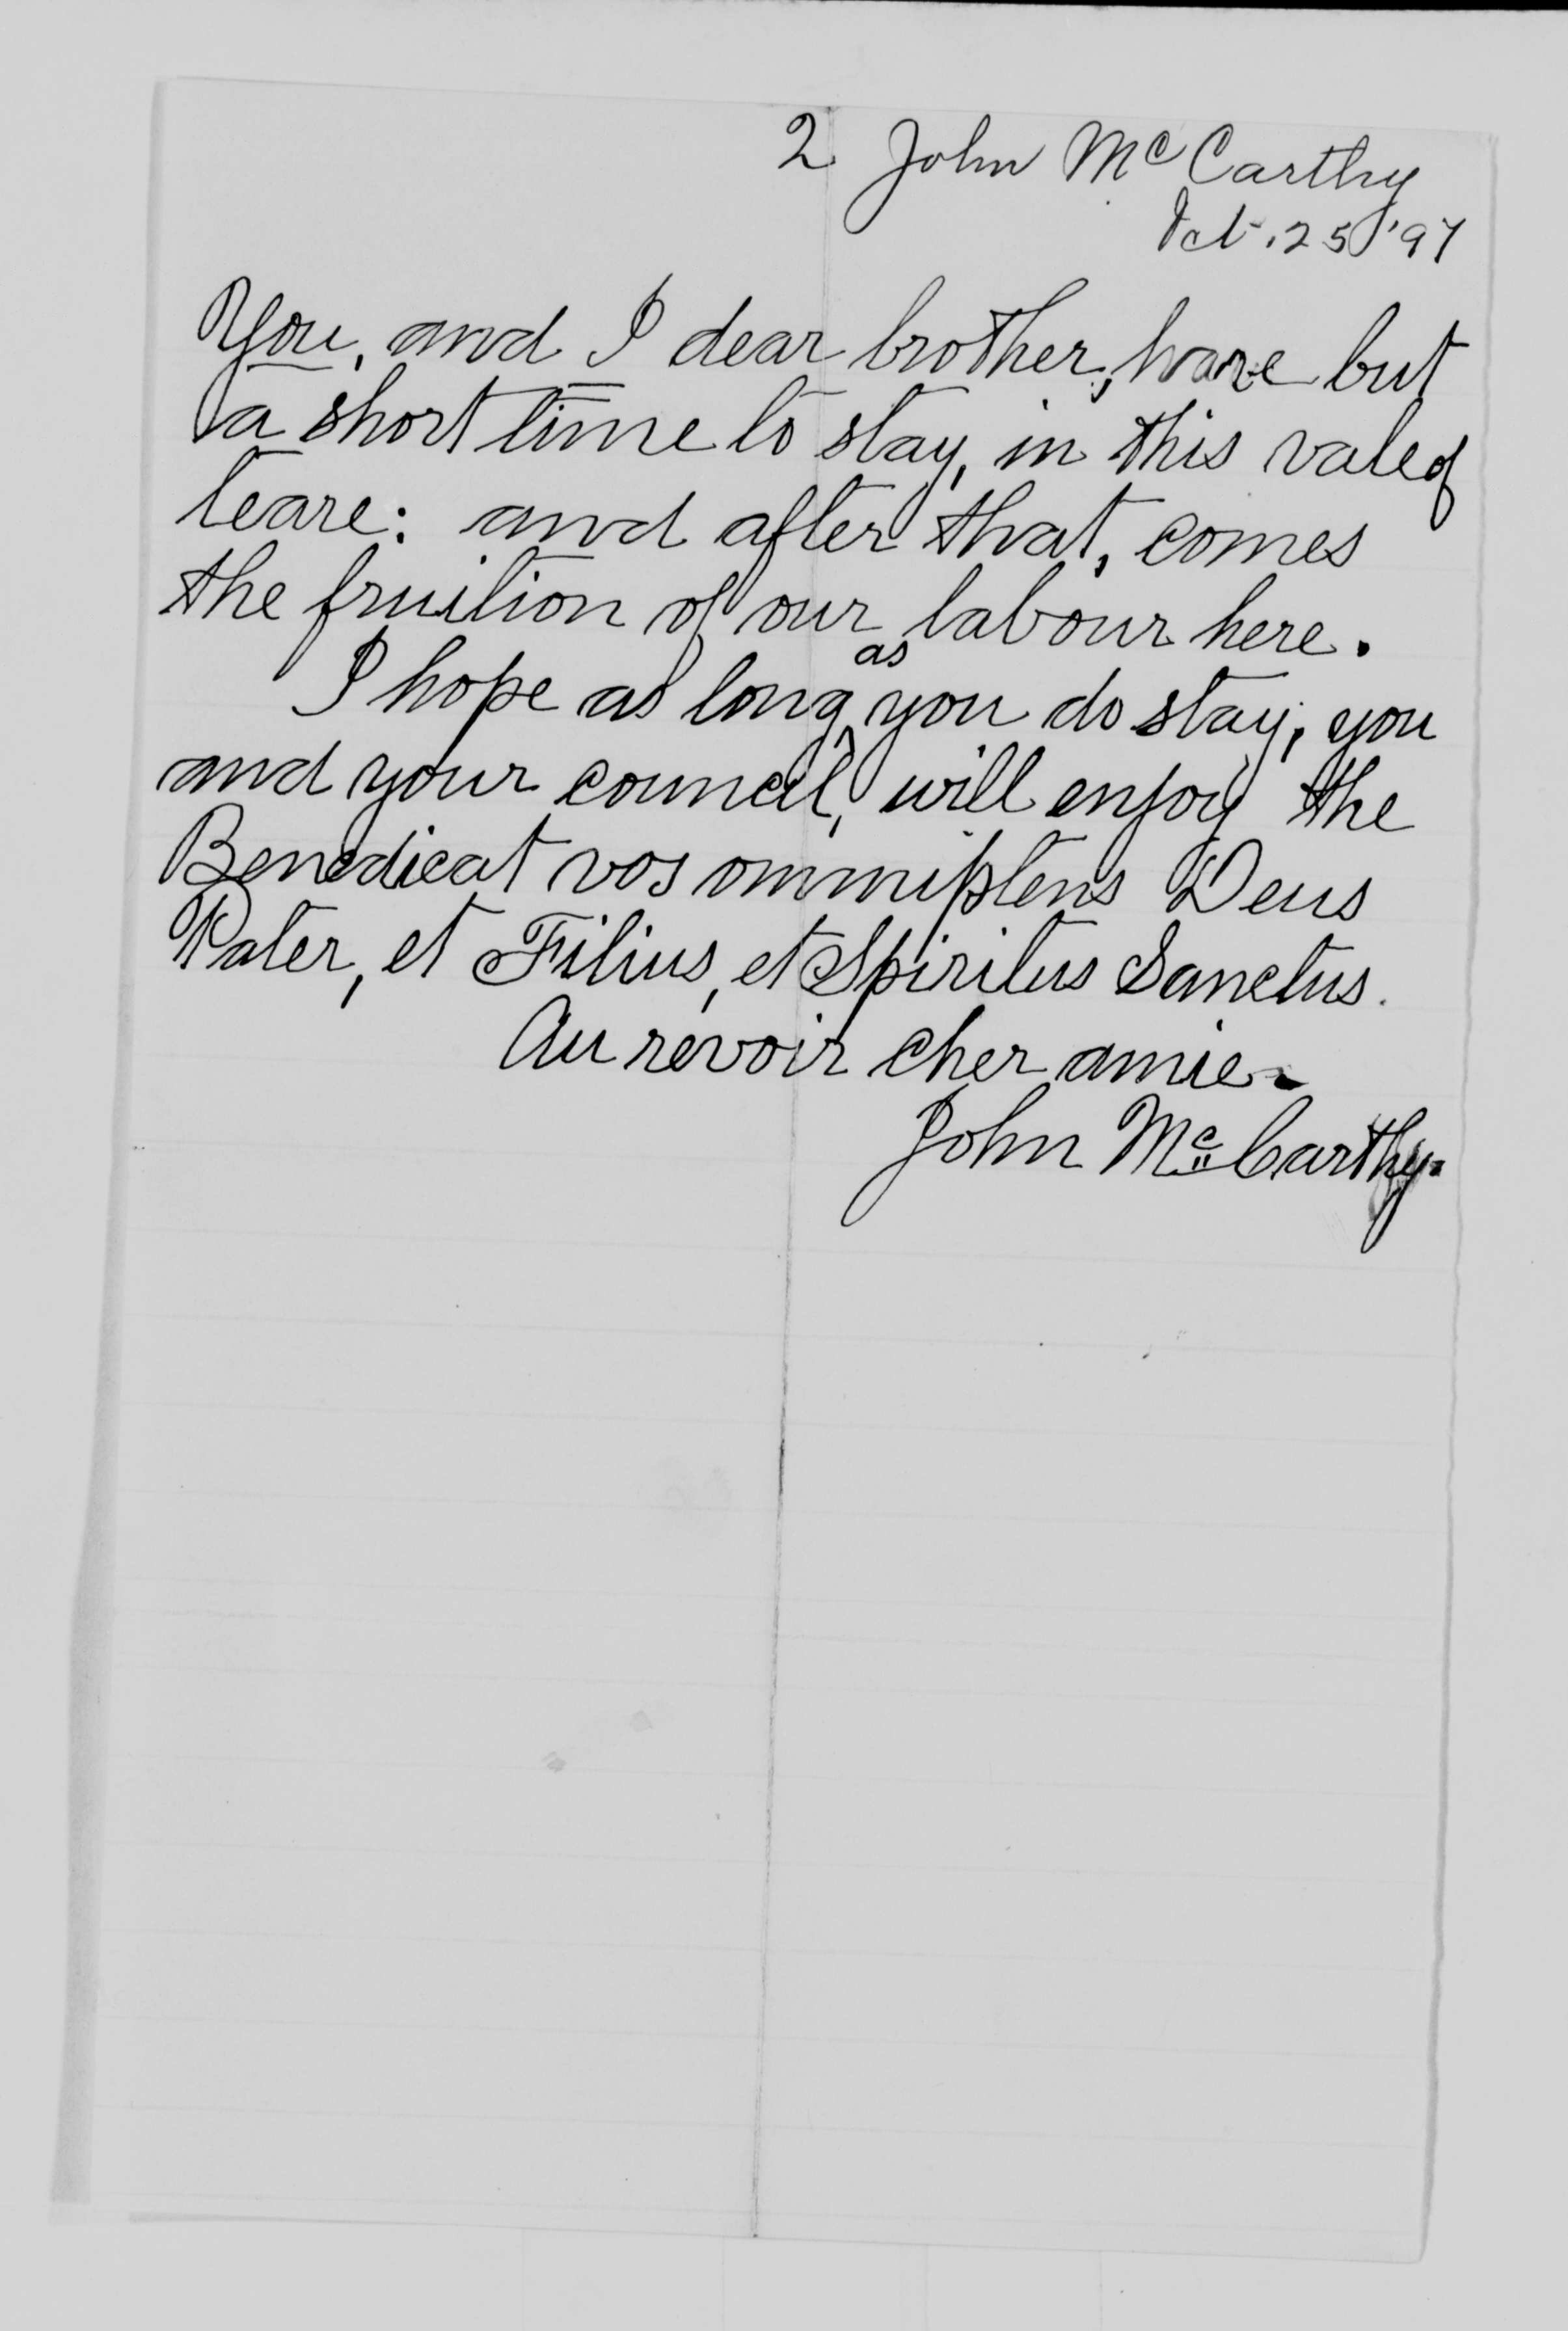 2 John Mc Carthy
Oct. 25 '97
You, and I dear brother, have but
a short time to stay, in this vale of
teare: and after that, comes
the fruition of our labour here.
I hope as long as you do stay, you
and your council, will enjoy the
Benedicat vos omnniptens Deus
Pater, et Filius, et Spiritus Sanctus.
Au revoir cher amie.
John Mc Carthy.